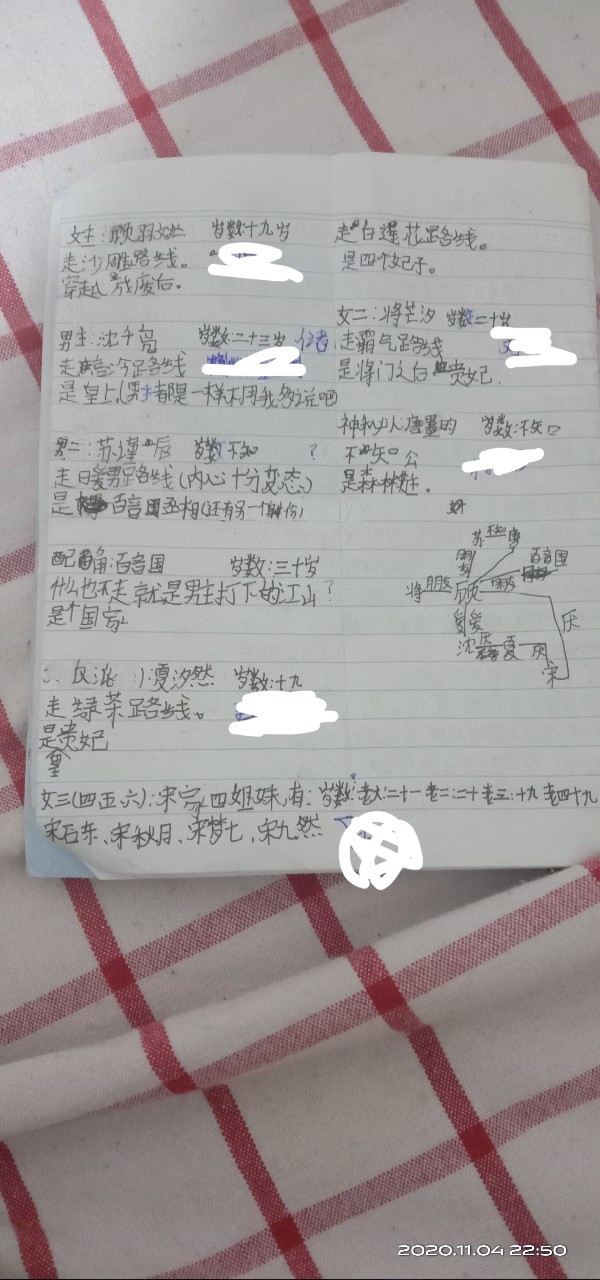 女主:顾羽 岁数十九岁
走沙雕路线。
穿越成废后。
男主:沈千 岁数:二十三岁
走高冷路线
是皇上(男主都是一样不用我多说吧
男二:苏瑾后 岁数不知 ?
走暖男路线(内心十分变态)
是百音国丞相(还有另一个身份)
配角:百音国 岁数:三十岁
什么也不走就是男主打下的江山?
是个国家
反派:夏汐然 岁数:十九
走绿茶路线。
是皇贵妃
女三(四五六):宋家四姐妹,有: 岁数:老大:二十一 老二:二十 老三:十九 老四十九
宋石东、宋秋月、宋梦七、宋九然
走白莲花路线。
是四个妃子。
女二:将芒汐 岁数二十岁
走霸气路线
是将门之后 贵妃.
神秘人唐墨的 岁数:不知
不知 公
是森林
苏
唐
朋友
百音国
将 朋友 顾
爱
沈 厌 夏 厌
厌
宋
2020.11.04 22:50